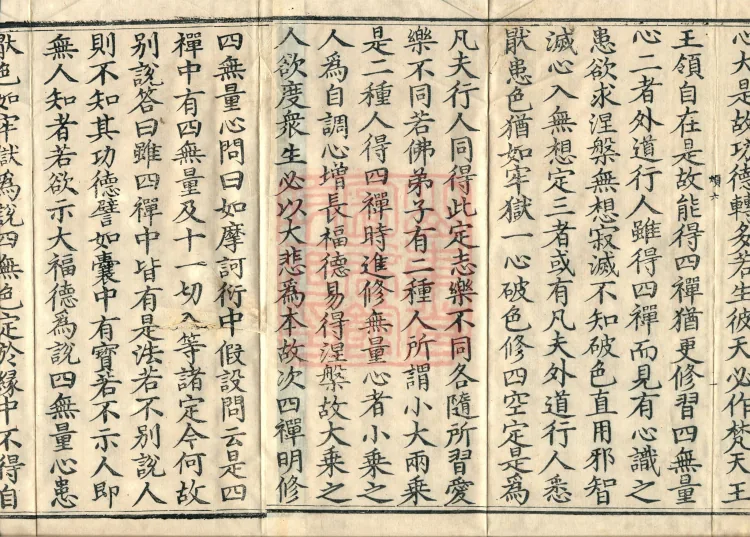 心大是故功德轉多若生彼天必作梵天王
王領自在是故能得四禪猶更修習四無量
心二者外道行人雖得四禪而見有心識之
患欲求涅槃無想寂滅不知破色直用邪智
滅心入無想定三者或有凡夫外道行人悉
猒患色猶如牢獄一心破色修四空定是爲
凡夫行人同得此定志樂不同各隨所習愛
樂不同若佛弟子有二種人所謂小大兩乗
是二種人得四禪時進修無量心者小乗之
人爲自調心增長福德易得涅槃故大乗之
人欲度衆生必以大悲爲本故次四禪明修
四無量心問曰如摩訶衍中假設問云是四
禪中有四無量及十一切入等諸定今何故
別說答曰雖四禪中皆有是法若不別說人
則不知其功德譬如囊中有寳若不示人即
無人知者若欲示大福德爲說四無量心患
猒色如牢獄爲說四無色定於緣中不得自